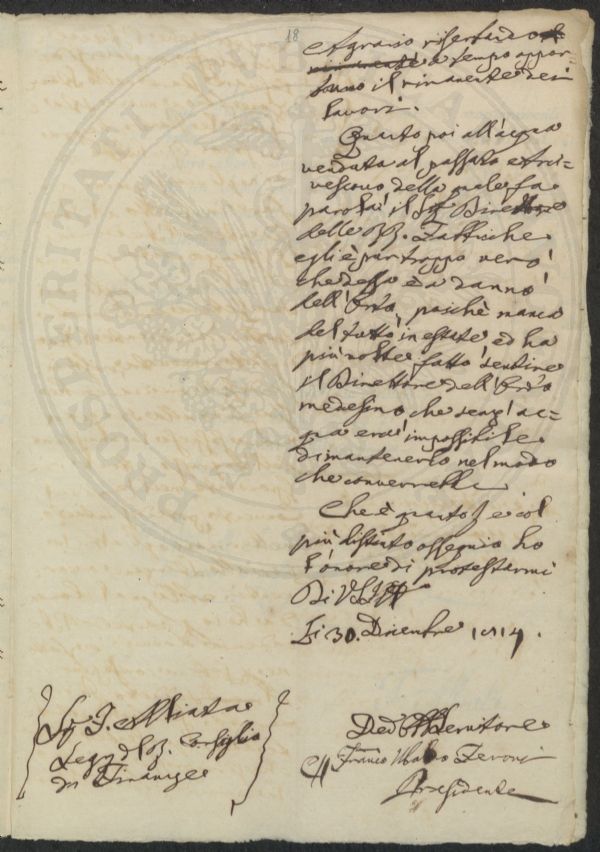 18
Agrario riserbando
a tempo oppor=
tuno il rimanente dei
lavori.
Quanto poi all'acqua
venduta al passato Arci=
vescovo della quale fa
parola il Sig. Direttore
delle RR. Fabbriche
egli è purtroppo vero
che desso è a danno
dell'Orto, poichè manca
del tutto in estate ed ha
più volte fatto sentire
il Direttore dell'Orto
medesimo che senz'ac=
qua era impossibile
di mantenerlo nel modo
che converrebbe.
Che è quanto e col
più distinto ossequio ho
l'onore di protestarmi
Di
Li 30. Dicembre 1814.
Sig. J. Alliata
Segr. del R. Consiglio
di Finanze
Dev Obb Servitore
Feroni
Presidente
PROSPERITATI PUBLICAE